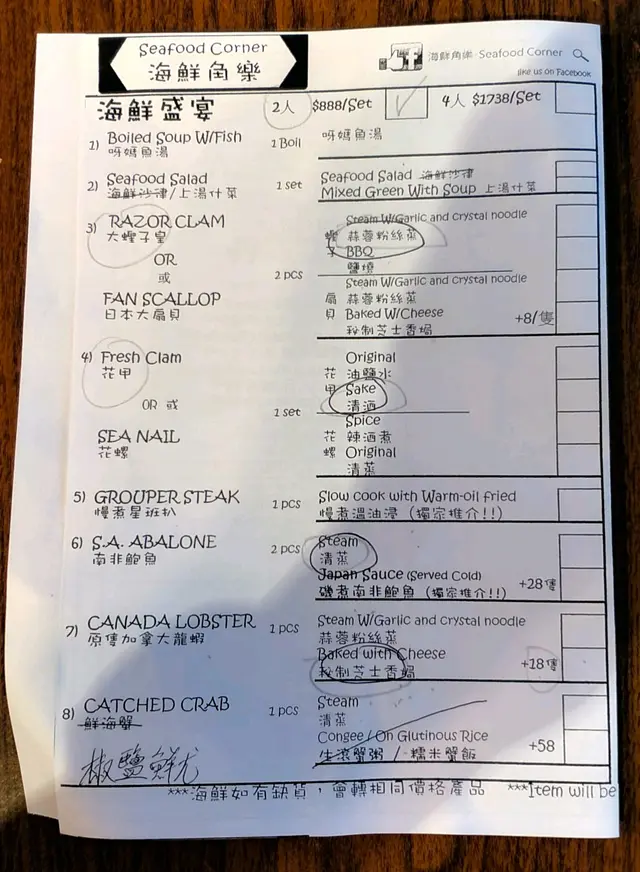 Seafood Corner
海鮮角樂
海鮮角樂 - Seafood Corner
like us on Facebook
海鮮盛宴 2人 $888/Set 4人 $1738/Set
1) Boiled Soup W/Fish 1 Boil 呀媽魚湯
呀媽魚湯
2) Seafood Salad 1 set Seafood Salad 海鮮沙律
海鮮沙律/上湯什菜 Mixed Green With Soup 上湯什菜
3) RAZOR CLAM Steam W/Garlic and crystal noodle
大蟶子皇 蟶 蒜蓉粉絲蒸
OR 子 BBQ
或 2 pcs 鹽燒
Steam W/Garlic and crystal noodle
FAN SCALLOP 扇 蒜蓉粉絲蒸
日本大扇貝 貝 Baked W/Cheese +8/隻
秘制芝士香焗
4) Fresh Clam Original
花甲 花 油鹽水
甲 Sake
OR 或 1 set 清酒
Spice
SEA NAIL 花 辣酒煮
花螺 螺 Original
清蒸
5) GROUPER STEAK 1 pcs Slow cook with Warm-oil fried
慢煮星班扒 慢煮溫油浸 (獨家推介!!)
6) S.A. ABALONE 2 pcs Steam
南非鮑魚 清蒸
Japan Sauce (Served Cold) +28隻
磯煮南非鮑魚 (獨家推介!!)
7) CANADA LOBSTER 1 pcs Steam W/Garlic and crystal noodle
原隻加拿大龍蝦 蒜蓉粉絲蒸
Baked with Cheese +18隻
秘制芝士香焗
8) CATCHED CRAB 1 pcs Steam
鮮海蟹 清蒸
Congee / On Glutinous Rice +58
生滾蟹粥 / 糯米蟹飯
椒鹽鮮尤
***海鮮如有缺貨，會轉相同價格產品 ***Item will be